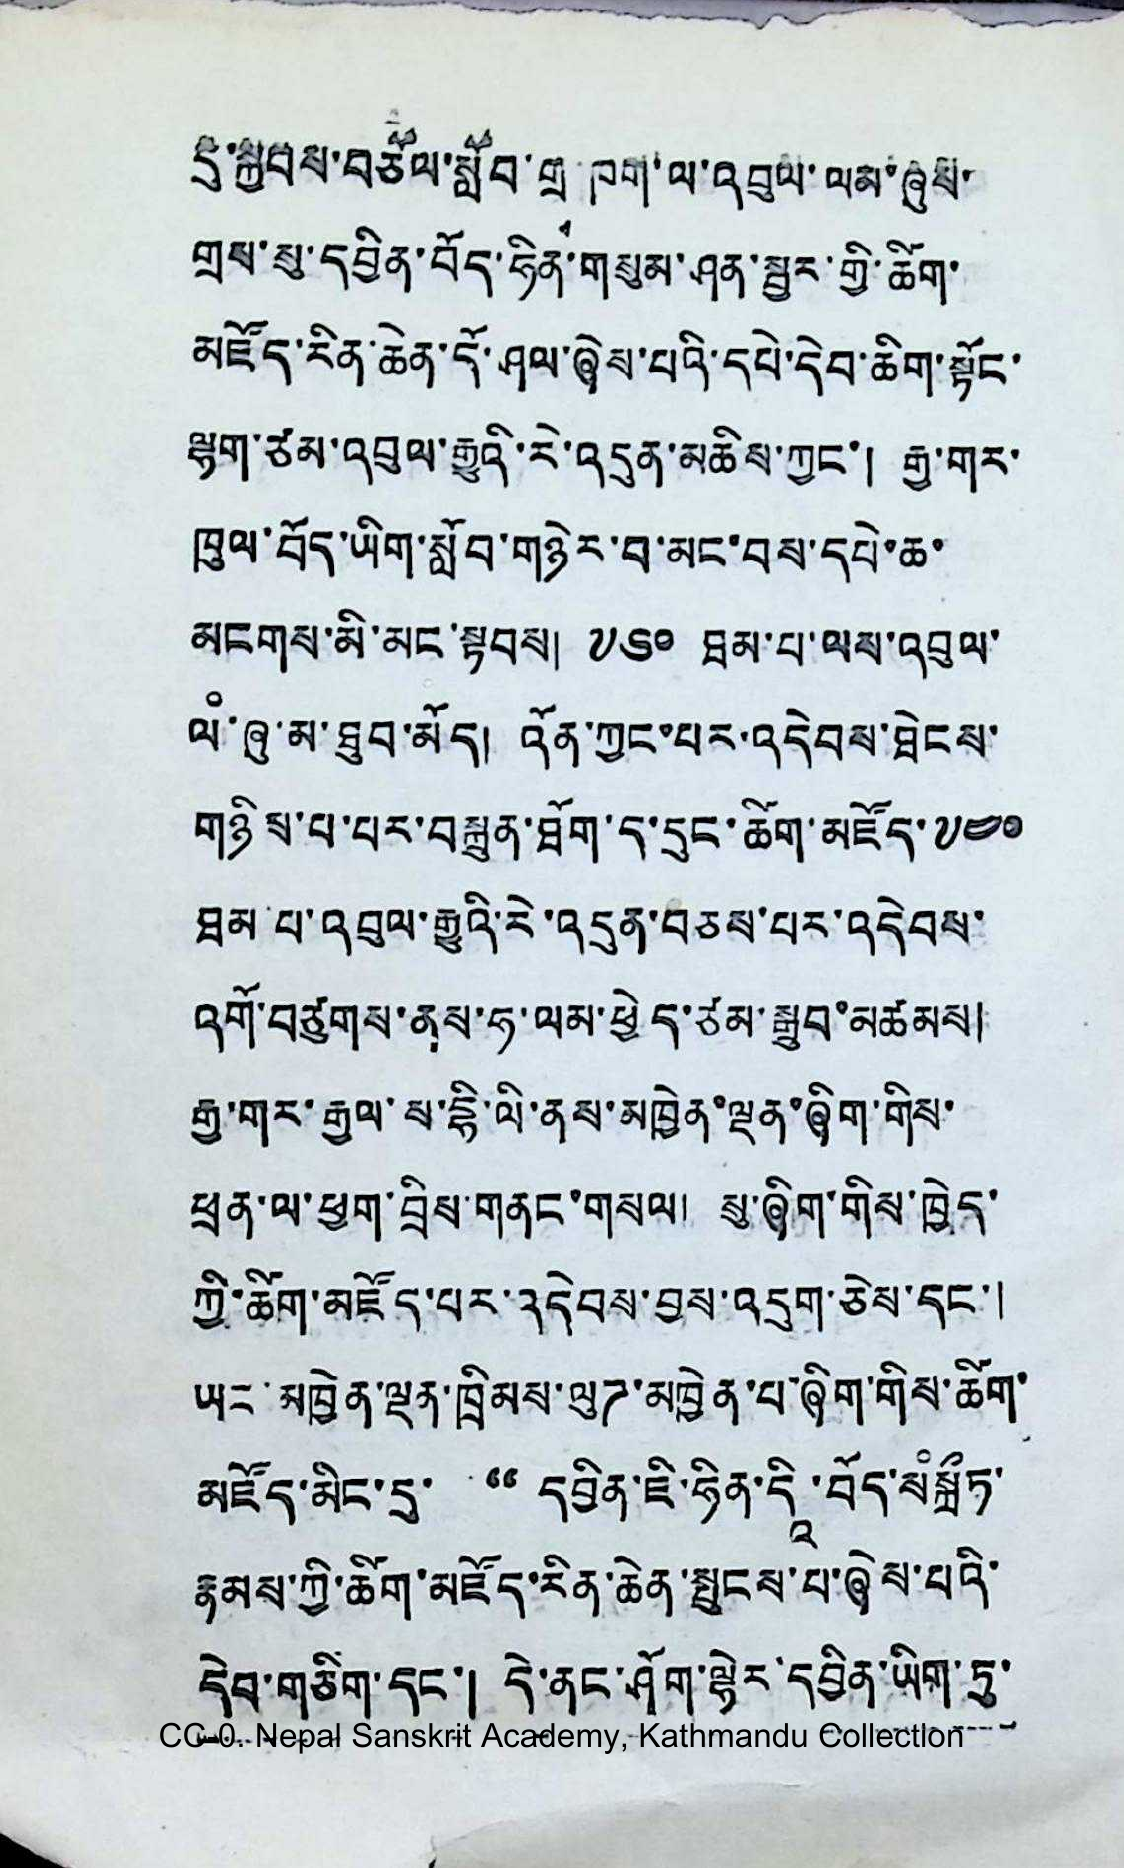 དུ་སྐྱབས་བཅོལ་སློབ་གྲྭ་ཁག་ལ་འབུལ་ལམ་ཞུས་
གྲས་སུ་དབྱིན་བོད་ཧིན་གསུམ་ཤན་སྦྱར་གྱི་ཚིག་
མཛོད་རིན་ཆེན་དོ་ཤལ་ཞེས་པའི་དཔེ་དེབ་ཆིག་སྟོང་
ལྷག་ཙམ་འབུལ་རྒྱུའི་རེ་འདུན་མཆིས་ཀྱང་། རྒྱ་གར་
ཁུལ་བོད་ཡིག་སློབ་གཉེར་བ་མང་བས་དཔེ་ཆ་
མངགས་མི་མང་སྟབས། ༧༦༠ ཐམ་པ་ལས་འབུལ་
ལཾ་ཞུ་མ་ཐུབ་མོད། འོན་ཀྱང་པར་འདེབས་ཐེངས་
གཉིས་པ་པར་བསྐྲུན་ཐོག་ད་དུང་ཚིག་མཛོད་
ཐམ་པ་འབུལ་རྒྱུའི་རེ་འདུན་བཅས་པར་འདེབས་
འགོ་བཙུགས་ནས་ཧ་ལམ་ཕྱེད་ཙམ་སྒྲུབ་མཚམས།
རྒྱ་གར་རྒྱལ་ས་ལི་ནས་མཁྱེན་ལྡན་ཞིག་གིས་
ཕྲན་ལ་ཕྱག་བྲིས་གནང་གསལ། སུ་ཞིག་གིས་ཁྱེད་
ཀྱི་ཚིག་མཛོད་པར་འདེབས་བྱས་འདུག་ཅེས་དང་།
ཡང་མཁྱེན་ལྡན་ཁྲིམས་ལུང་མཁྱེན་པ་ཞིག་གིས་ཚིག་
མཛོད་མིང་དུ་ “ དབྱིན་ཇི་ཧིན་དི་བོད་སཾསྐྲྀཏ་
རྣམས་ཀྱི་ཚིག་མཛོད་རིན་ཆེན་སྤུངས་པ་ཞེས་པའི་
དེབ་གཅིག་དང་། དེ་ནང་ཤོག་ལྷེར་དབྱིན་ཡིག་ཏུ་
CC-0. Nepal Sanskrit Academy, Kathmandu Collection